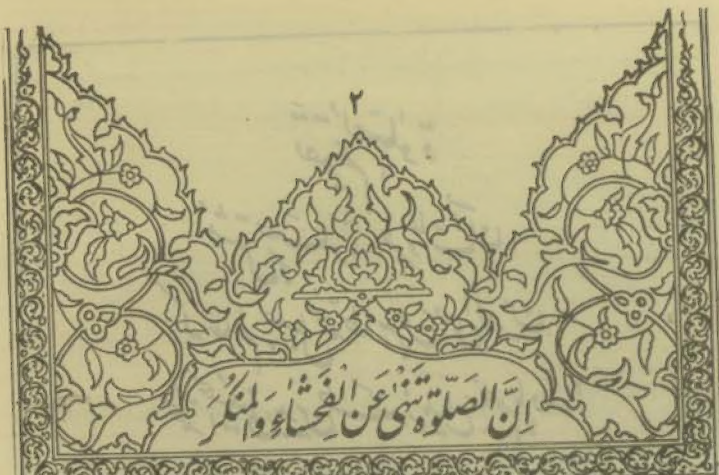 ٢
اِنَّ الصَّلٰوةَ تَنْهٰى عَنِ الْفَحْشٰاءِ وَالْمُنْكَرِ